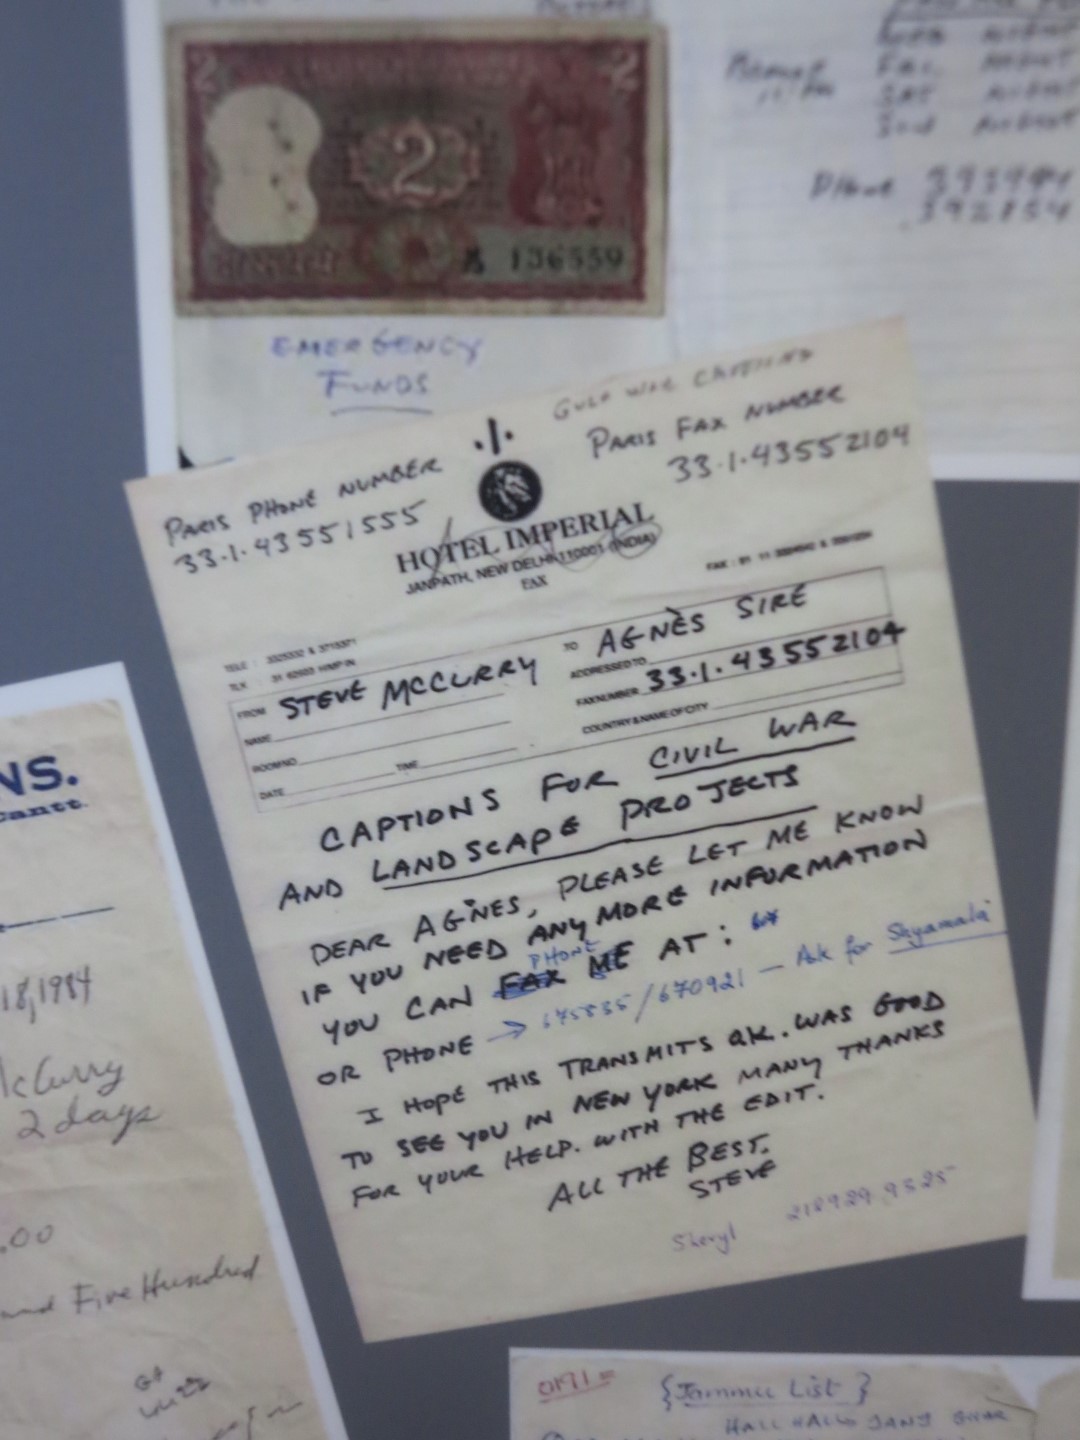 2
2
2
136559
EMERGENCY
FUNDS
AUGUST
FRI. AUGUST
SAT AUGUST
AUGUST
PHONE
GULF WAR
PARIS PHONE NUMBER
33.1.43551555
PARIS FAX NUMBER
33.1.43552104
HOTEL IMPERIAL
JANPATH, NEW DELHI-110001 (INDIA)
FAX
FAX : 91 11
TELE :
TLX :
FROM STEVE MCCURRY
TO AGNÈS SIRE
ADDRESSED TO
NAME
FAX NUMBER 33.1.43552104
ROOM NO. TIME
COUNTRY & NAME OF CITY
DATE
CAPTIONS FOR CIVIL WAR
AND LANDSCAPE PROJECTS
DEAR AGNES, PLEASE LET ME KNOW
IF YOU NEED ANY MORE INFORMATION
PHONE
YOU CAN FAX ME AT:
OR PHONE → 675835/670921 — Ask for Shyamala
I HOPE THIS TRANSMITS OK. WAS GOOD
TO SEE YOU IN NEW YORK MANY THANKS
FOR YOUR HELP. WITH THE EDIT.
ALL THE BEST.
STEVE
Sheryl 212929 9325
NS.
Cantt.
18, 1984
McCurry
2 days
.00
Five Hundred
{Jammu List}